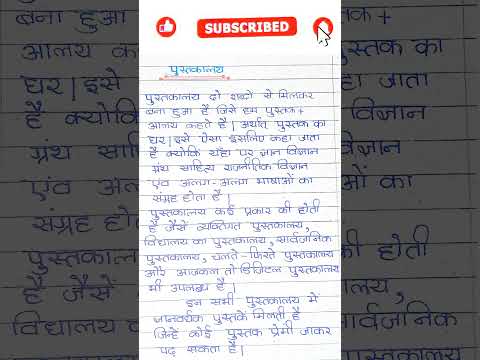 SUBSCRIBED
पुस्तकालय
पुस्तकालय दो शब्दों से मिलकर
बना हुआ है जिसे हम पुस्तक+
आलय कहते हैं। अर्थात पुस्तक का
घर। इसे ऐसा इसलिए कहा जाता
है क्योकि यँहा पर ज्ञान विज्ञान
ग्रंथ साहित्य राजनीतिक विज्ञान
एंव अलग-अलग भाषाओं का
संग्रह होता है।
पुस्तकालय कई प्रकार की होती
है जैसे व्यक्तिगत पुस्तकालय,
विद्यालय का पुस्तकालय, सार्वजनिक
पुस्तकालय, चलते-फिरते पुस्तकालय
और आजकल तो डिजिटल पुस्तकालय
भी उपलब्ध है।
इन सभी पुस्तकालय में
ज्ञानवर्धक पुस्तकें मिलती हैं
जिन्हें कोई पुस्तक प्रेमी जाकर
पढ़ सकता है।